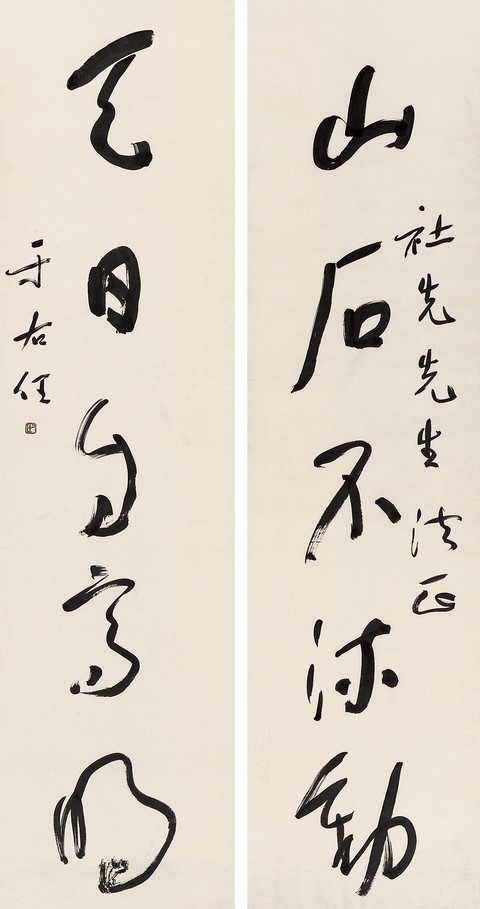 社先先生法正
山石不流動
天日自高明
于右任